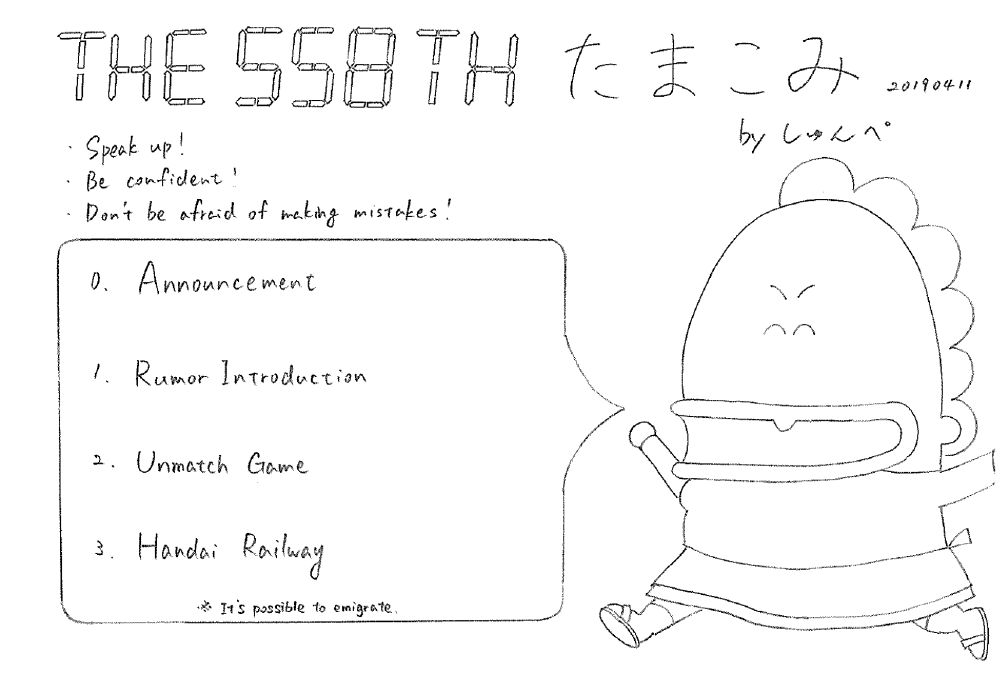 THE 558TH たまこみ 20190411
by しゅんぺ
・Speak up!
・Be confident!
・Don't be afraid of making mistakes!
0. Announcement
1. Rumor Introduction
2. Unmatch Game
3. Handai Railway
※ It's possible to emigrate.